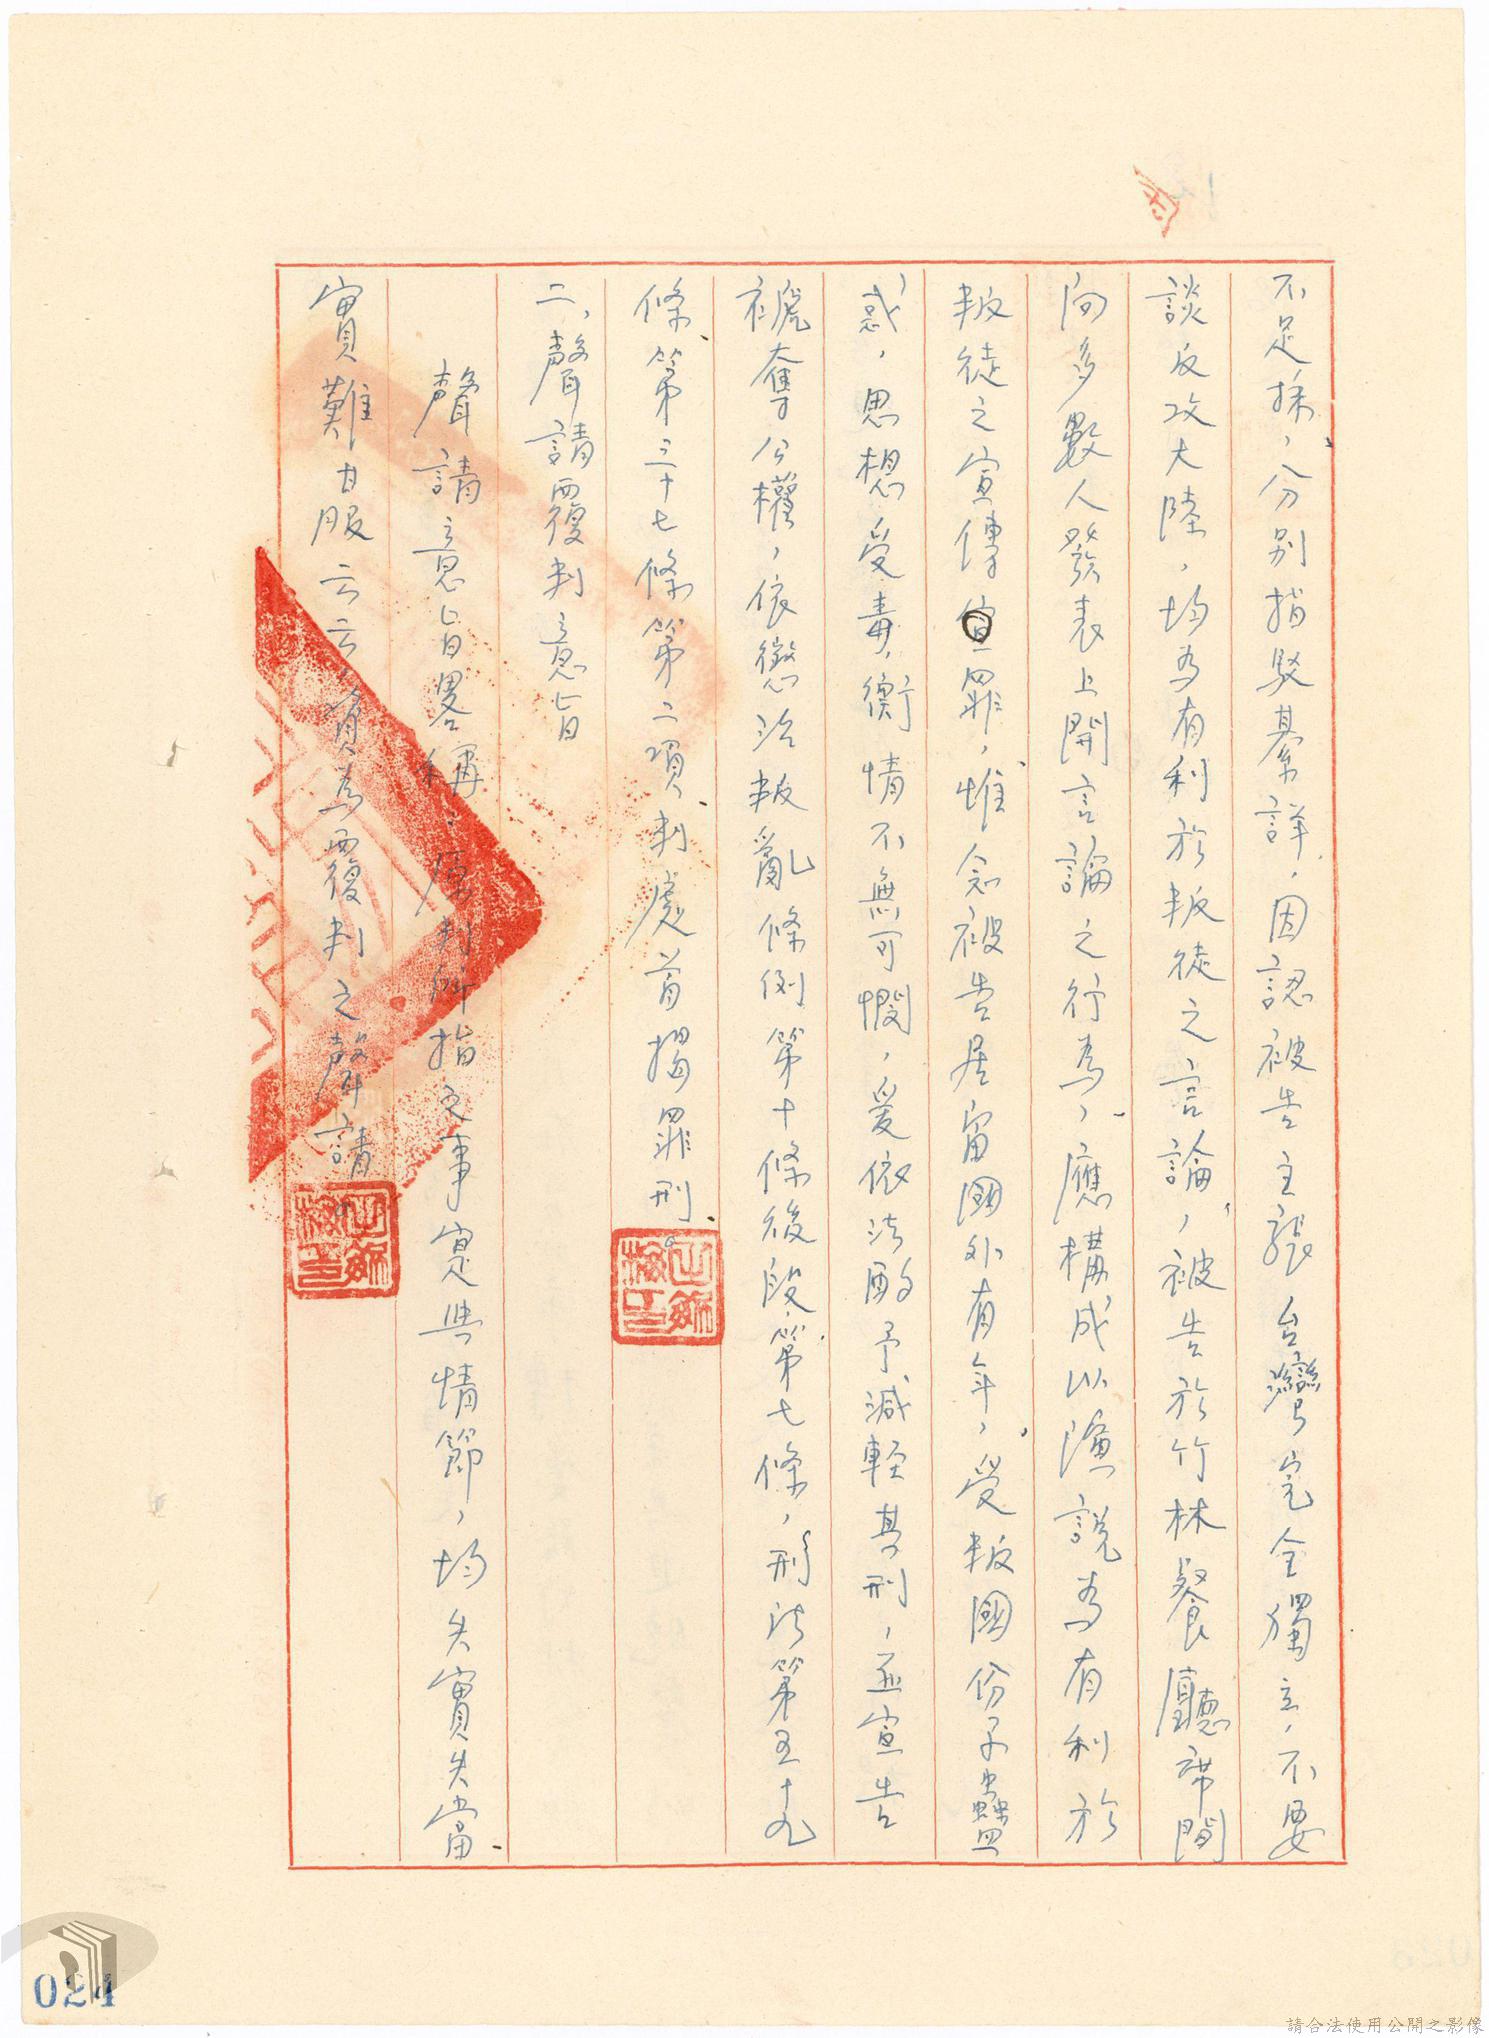 不足採，分別指駁綦詳，因認被告主張台灣完全獨立，不要
談反攻大陸，均為有利於叛徒之言論，被告於竹林餐廳席間
向多數人發表上開言論之行為，應構成以演說為有利於
叛徒之宣傳宣罪，惟念被告居留國外有年，受叛國份子蠱
惑，思想受毒，衡情不無可憫，爰依法酌予減輕其刑，並宣告
褫奪公權，依懲治叛亂條例第十條後段第七條，刑法第五十九
條第三十七條第二項，判處首揭罪刑。
二、聲請覆判意旨
聲請意旨畧稱：原判所指之事寔與情節，均失實失當
實難甘服云云，資為覆判之聲請。
024
請合法使用公開之影像